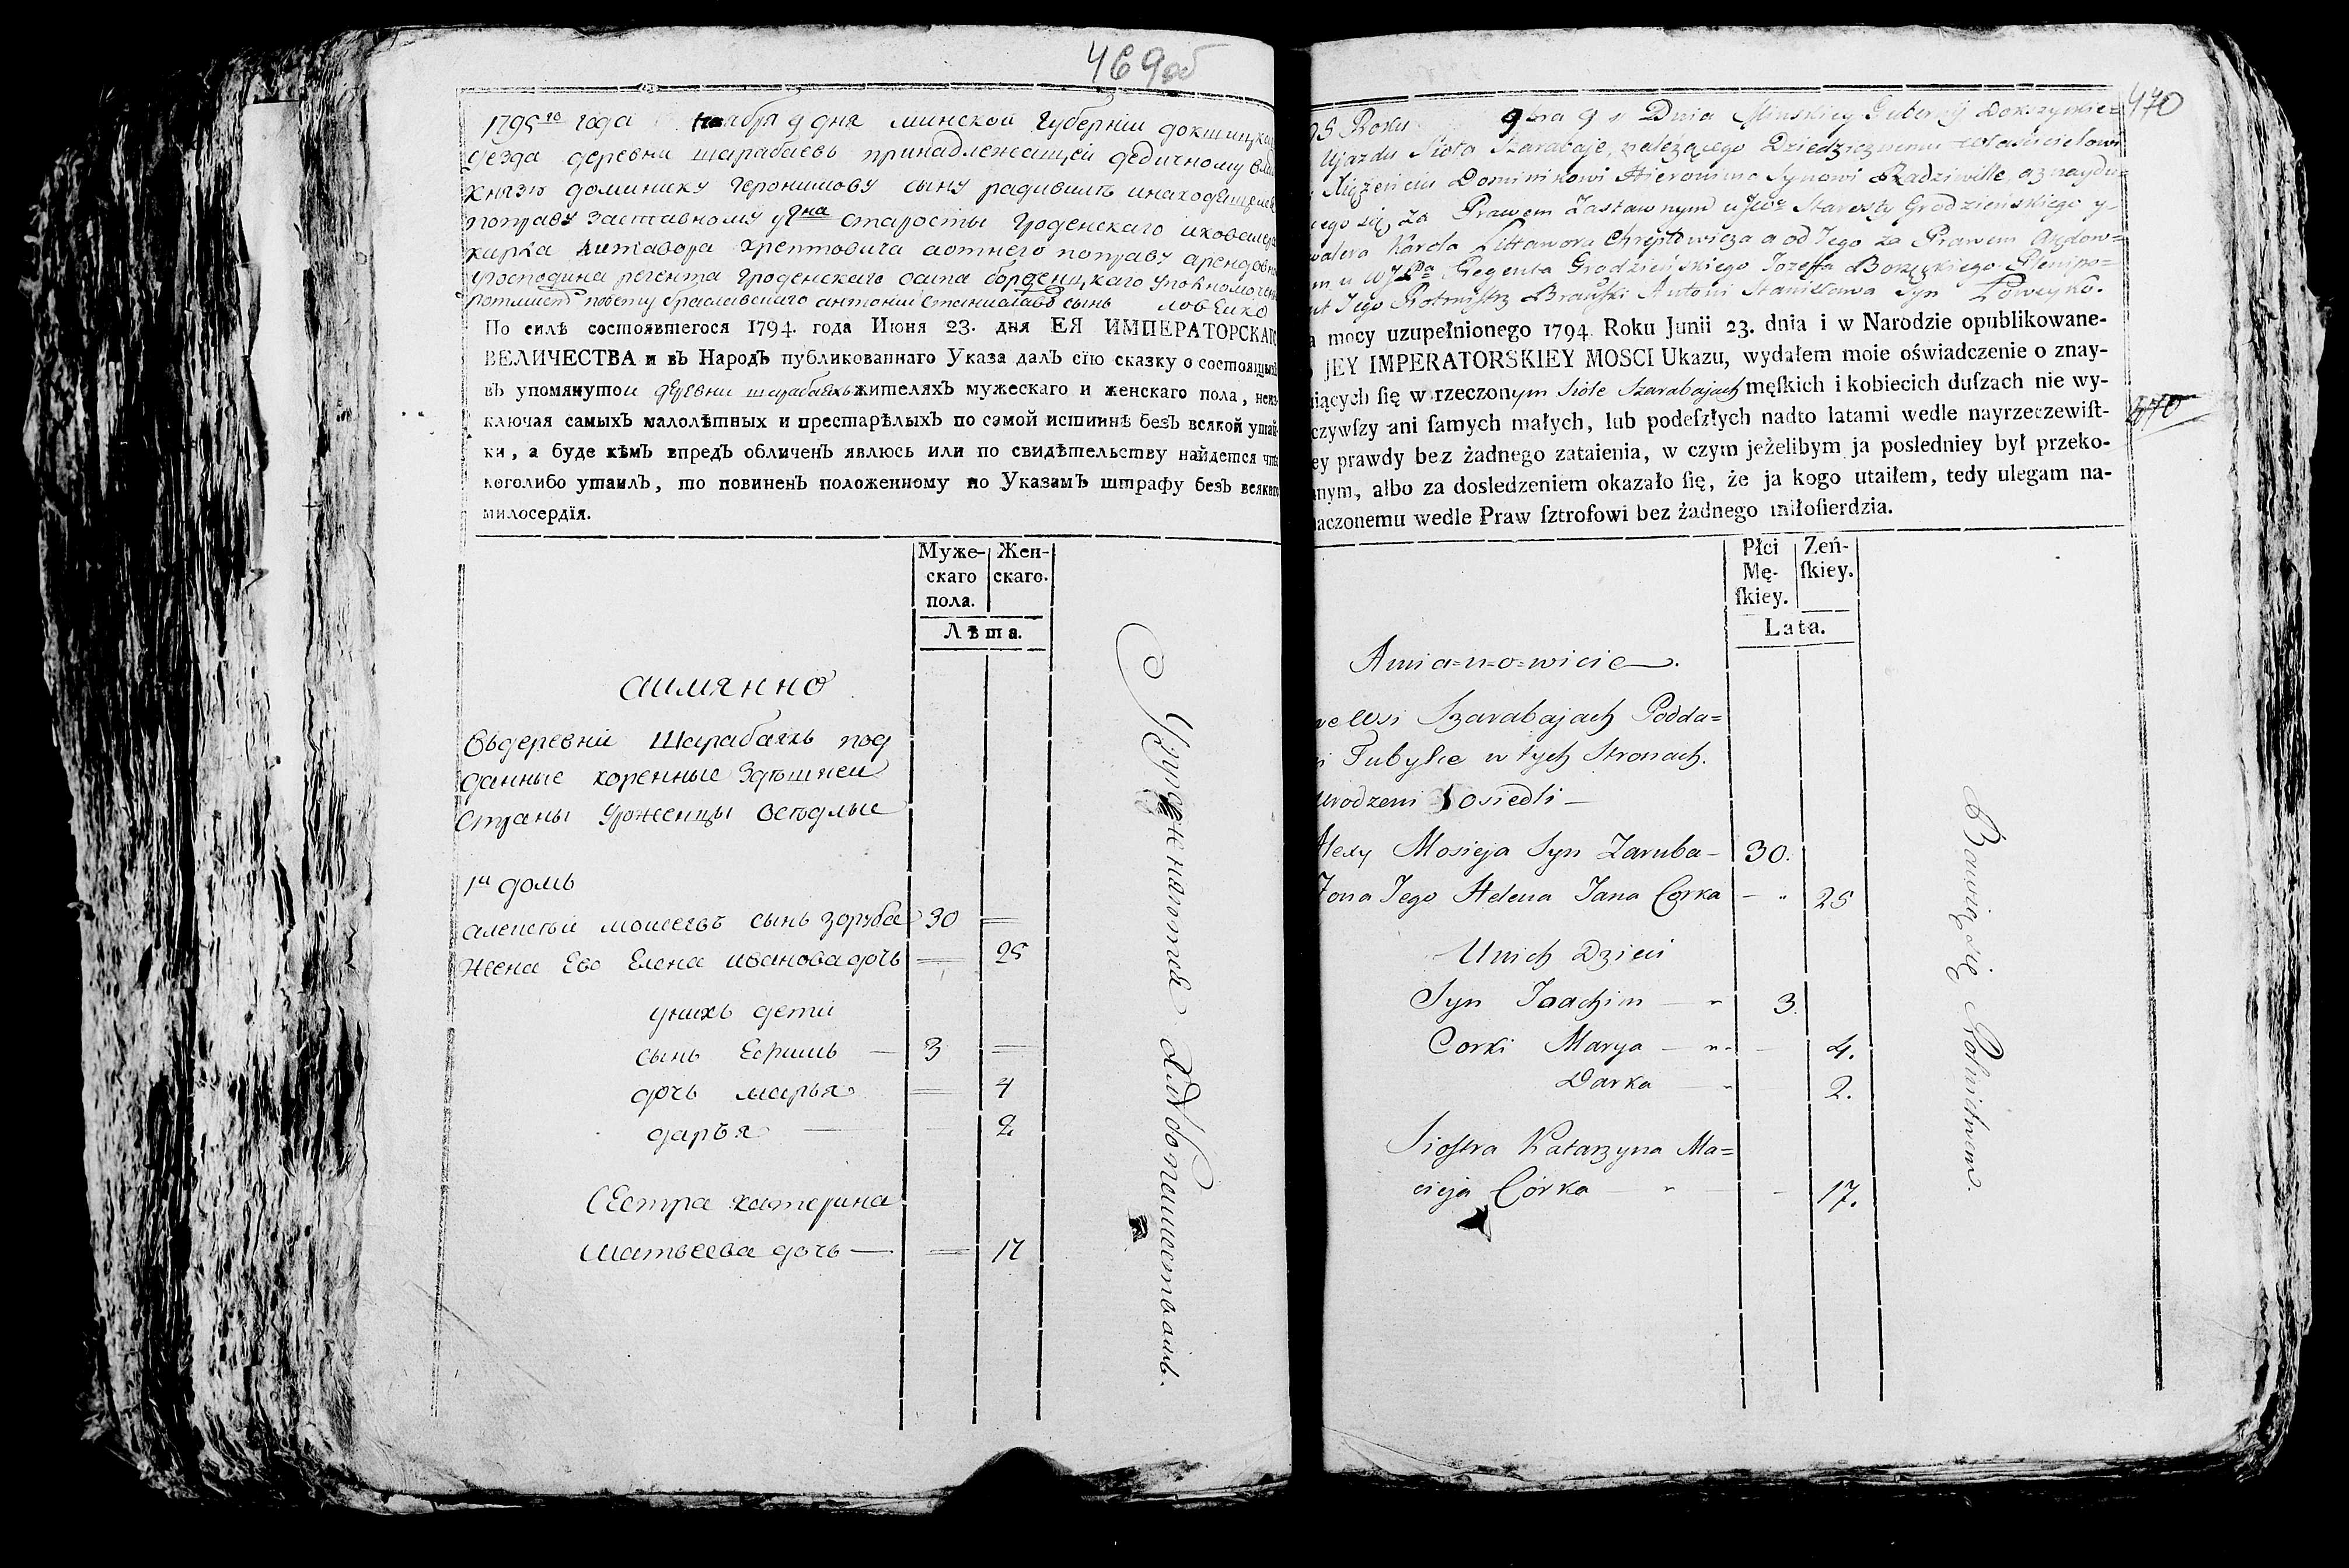 469 об
1795го года Ноября 9 дня минской губернии докшицкаго
уезда деревни шарабаевъ принадлежащей дедичному
князю доминику иеронимову сыну радивилъ инаходящемся
поправу заставному у старосты гроденскаго икавалера
карла литавора хрептовича аотнего поправу
Господина регента гроденскаго
ротмистръ повету браславскаго антоний станиславовъ сынъ ловейко
По силѣ состоявшегося 1794. года Июня 23. дня ЕЯ ИМПЕРАТОРСКАГО
ВЕЛИЧЕСТВА и въ Народъ публикованнаго Указа далъ сїю сказку о состоящихъ
въ упомянутои деревни шарабаяхъ жителяхъ мужескаго и женскаго пола, неиз-
ключая самыхъ малолѣтныхъ и престарѣлыхъ по самой истиннѣ безъ всякой утай-
ки, а буде кѣмъ впредъ обличенъ явлюсь или по свидѣтельству найдется что
коголибо утаилъ, то повиненъ положенному по Указамъ штрафу безъ всякаго
милосердїя.
Муже-
скаго
пола.
Жен-
скаго.
Лѣта.
аимянно
Въдеревни Шарабаяхъ под
данные коренные здешней
Страны Уроженцы оседлые
1й домъ
алексей мосеевъ сынъ заруба 30
Жена Его Елена иванова дочь 25
унихъ дети
сынъ Ефимъ 3
дочь марья 4
дарья 2
СЕстра катерина
Матвеева дочь 17
Упражняются хлебопашествамъ.
470
95 Roku 9bra 9 Dnia Minskiey Gubernij Dokszyckie=
Ujazdu Sioła Szarabaje, należącego Dziedzicznemu właścicielowi
Xiążęciu Dominikowi Hieronima Synowi Radziwille, a znaydu=
iącego się, za Prawem Zastawnym u Starosty Grodzieńskiego y
walera Karola Littawora Chreptowicza a od Jego za Prawem Arędow=
m u Regenta Grodzieńskiego Jozeffa Borzęckiego Plenipo=
nt Jego Rotmistrz Brawski Antoni Stanisława Syn Łoweyko.
a mocy uzupełnionego 1794 Roku Junii 23. dnia i w Narodzie opublikowane-
JEY IMPERATORSKIEY MOSCI Ukazu, wydałem moie oświadczenie o znay-
iących ſię w rzeczonym Siole Szarabajach męſkich i kobiecich duſzach nie wy-
czywſzy ani ſamych małych, lub podeſzłych nadto latami wedle nayrzeczewiſt-
ey prawdy bez żadnego zataienia, w czym jeżelibym ja posledniey był przeko-
nym, albo za dosledzeniem okazało ſię, że ja kogo utaiłem, tedy ulegam na-
aczonemu wedle Praw ſztrofowi bez żadnego miłoſierdzia.
470
Płci
Mę-
ſkiey.
Zeń-
ſkiey.
Lata.
A mia=n=o=wicie.
we Wsi Szarabajach Podda=
i Tubylce w tych Stronach.
urodzeni Y osiedli
Alexy Mosieja Syn Zaruba 30.
Zona Jego Helena Jana Corka 25
U nich Dzieci
Syn Joachim 3.
Corki Marya 4.
Darka 2.
Siostra Katarzyna Ma=
cieja Córka 17.
Bawią się Rolnictwem.